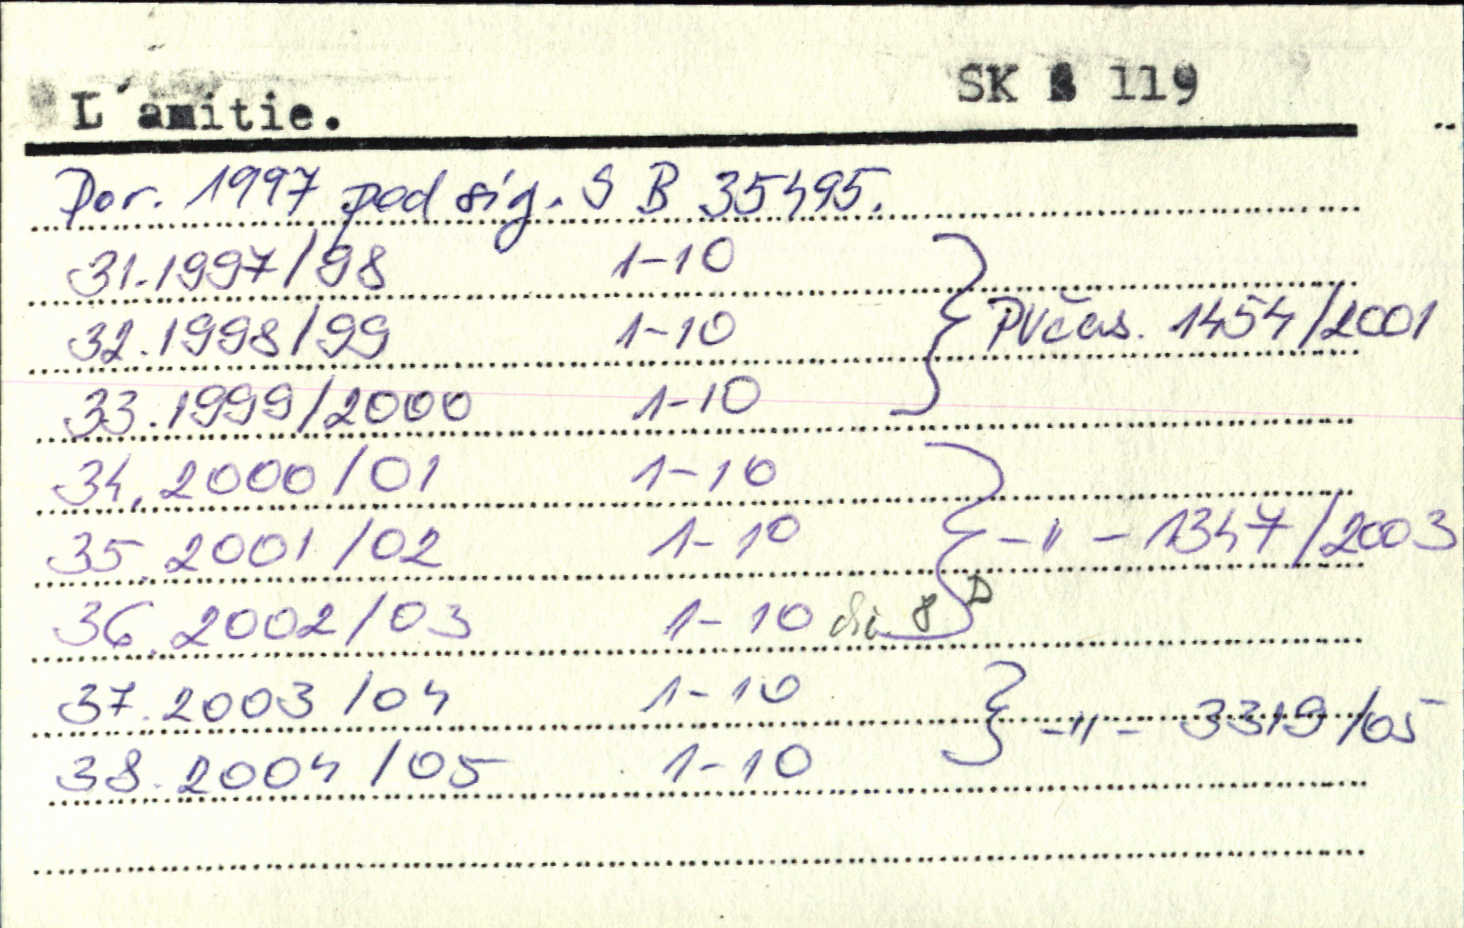 L'amitie. SK 119
Por. 1997 pod sig. S B 35495.
31.1997/98 1-10
32.1998/99 1-10 PVčas. 1454/2001
33.1999/2000 1-10
34.2000/01 1-10
35.2001/02 1-10 -"- 1347/2003
36.2002/03 1-10 8 D
37.2003/04 1-10 -"- 3319/05
38.2004/05 1-10